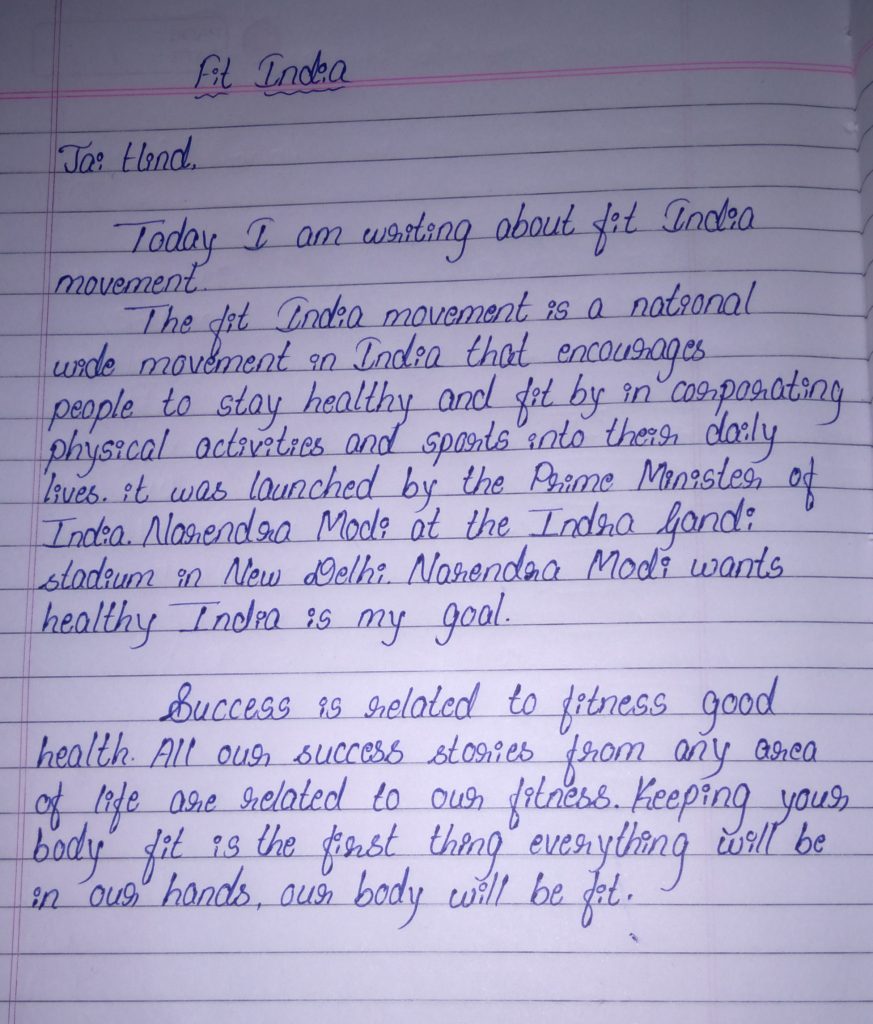 Fit India
Jai Hind,
Today I am writing about fit India
movement.
The fit India movement is a national
wide movement in India that encourages
people to stay healthy and fit by in corporating
physical activities and sports into their daily
lives. it was launched by the Prime Minister of
India. Narendra Modi at the Indra Gandi
stadium in New Delhi. Narendra Modi wants
healthy India is my goal.
Success is related to fitness good
health. All our success stories from any area
of life are related to our fitness. Keeping your
body fit is the first thing everything will be
in our hands, our body will be fit.